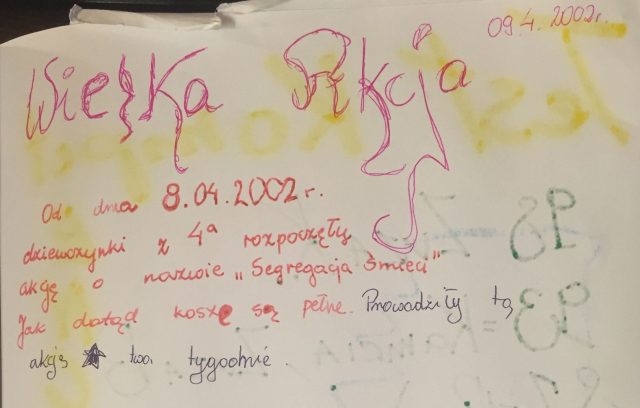 09.4.2002r.
Wielka Akcja
Od dnia 8.04.2002r.
dziewczynki z 4a rozpoczęły
akcję o nazwie „Segregacja śmieci"
Jak dotąd kosze są pełne. Prowadziły tą
akcję two tygodnie.